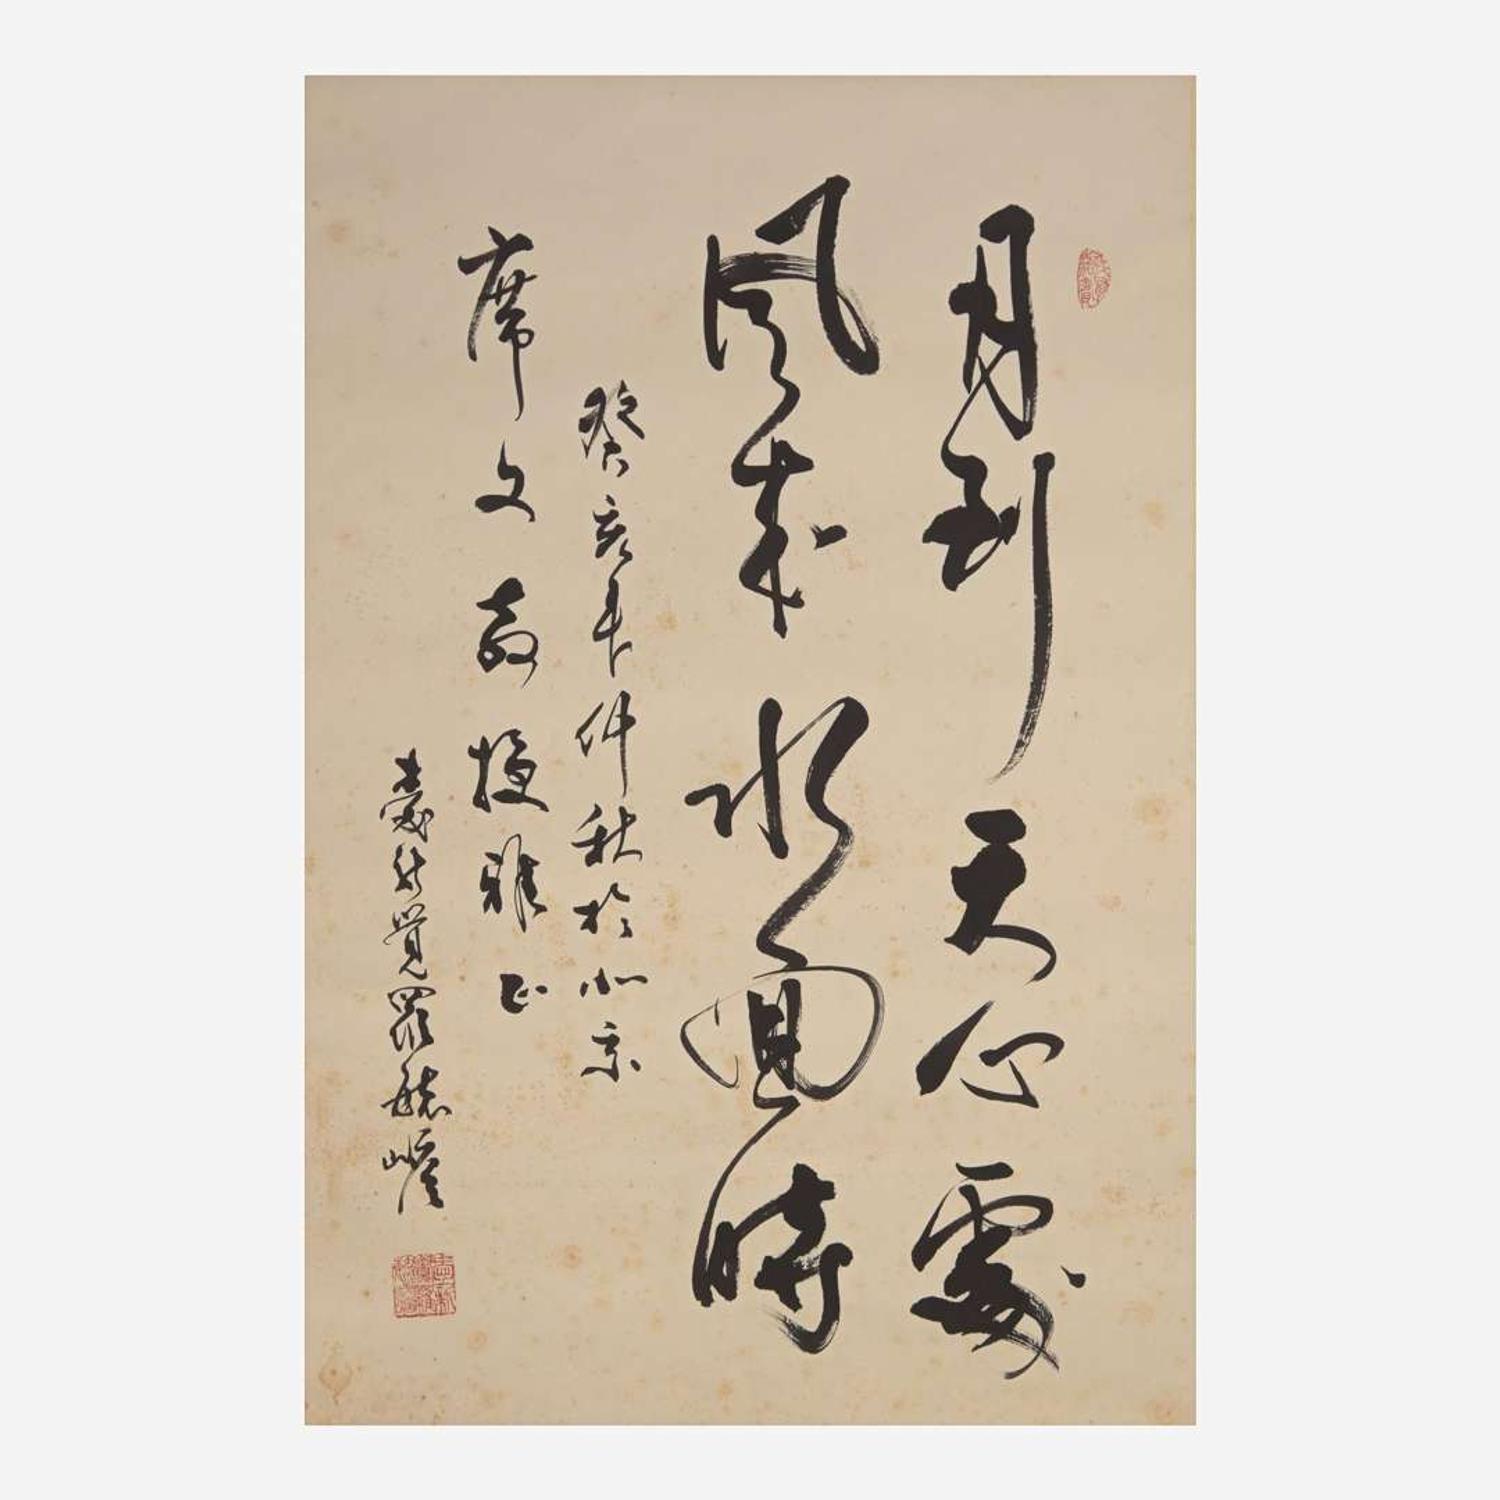 月到天心處
風來水面時
癸亥年仲秋於北京
席文教授雅正
愛新覺羅毓嶦